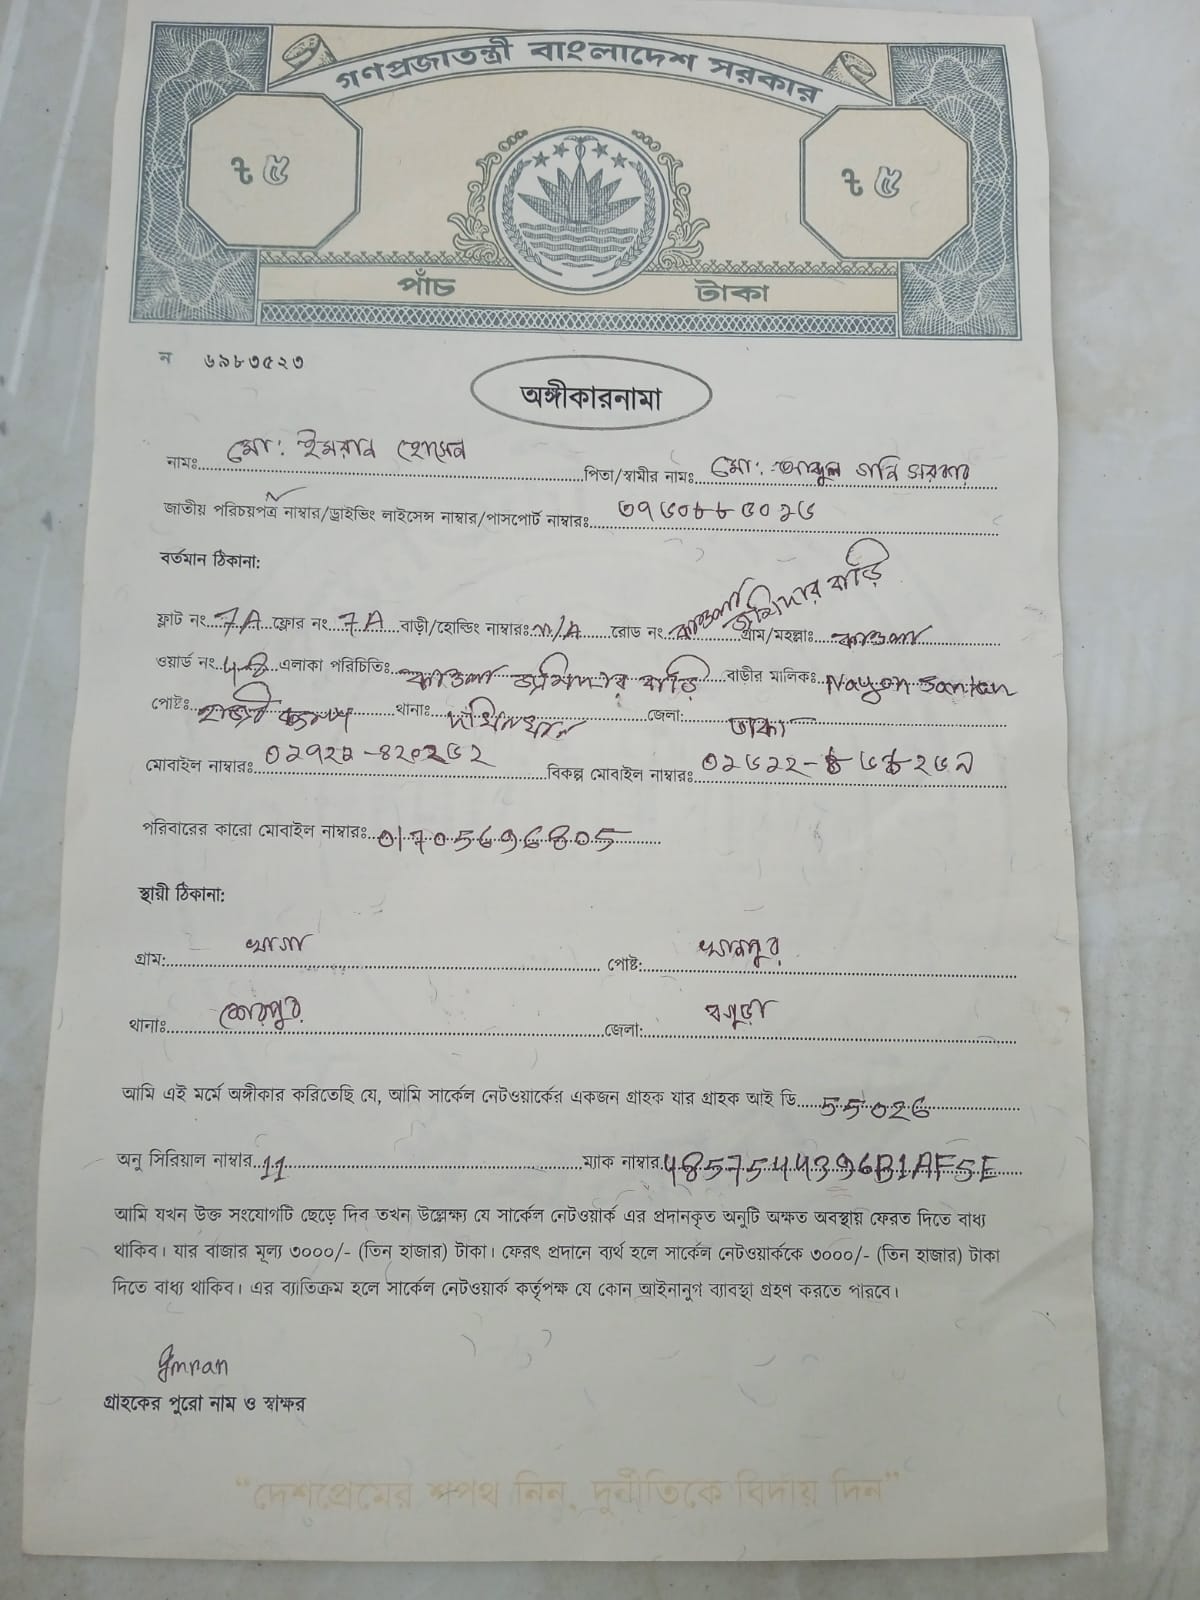 গণপ্রজাতন্ত্রী বাংলাদেশ সরকার
৳ ৫ ৳ ৫
পাঁচ টাকা
ন ৬৯৮৩৫২৩
অঙ্গীকারনামা
নামঃ মো: ইমরান হোসেন পিতা/স্বামীর নামঃ মো: আব্দুল গনি সরকার
জাতীয় পরিচয়পত্র নাম্বার/ড্রাইভিং লাইসেন্স নাম্বার/পাসপোর্ট নাম্বারঃ
বর্তমান ঠিকানা:
ফ্লাট নং 7A ফ্লোর নং 7A বাড়ী/হোল্ডিং নাম্বারঃ N/A রোড নং কাওলা জমিদার বাড়ি গ্রাম/মহল্লাঃ কাওলা
ওয়ার্ড নং এলাকা পরিচিতিঃ কাওলা জমিদার বাড়ি বাড়ীর মালিকঃ Nayon
পোষ্টঃ হাজী ক্যাম্প থানাঃ দক্ষিনখান জেলা: ঢাকা
মোবাইল নাম্বারঃ বিকল্প মোবাইল নাম্বারঃ
পরিবারের কারো মোবাইল নাম্বারঃ 01705696805
স্থায়ী ঠিকানা:
গ্রাম: খাগা পোষ্ট: খানপুর
থানাঃ শেরপুর জেলা: বগুড়া
আমি এই মর্মে অঙ্গীকার করিতেছি যে, আমি সার্কেল নেটওয়ার্কের একজন গ্রাহক যার গ্রাহক আই ডি 55026
অনু সিরিয়াল নাম্বার 11 ম্যাক নাম্বার 4857544396B1AF5E
আমি যখন উক্ত সংযোগটি ছেড়ে দিব তখন উল্লেক্ষ্য যে সার্কেল নেটওয়ার্ক এর প্রদানকৃত অনুটি অক্ষত অবস্থায় ফেরত দিতে বাধ্য
থাকিব। যার বাজার মূল্য ৩০০০/- (তিন হাজার) টাকা। ফেরৎ প্রদানে ব্যর্থ হলে সার্কেল নেটওয়ার্ককে ৩০০০/- (তিন হাজার) টাকা
দিতে বাধ্য থাকিব। এর ব্যাতিক্রম হলে সার্কেল নেটওয়ার্ক কর্তৃপক্ষ যে কোন আইনানুগ ব্যাবস্থা গ্রহণ করতে পারবে।
Imran
গ্রাহকের পুরো নাম ও স্বাক্ষর
“দেশপ্রেমের শপথ নিন, দুর্নীতিকে বিদায় দিন”